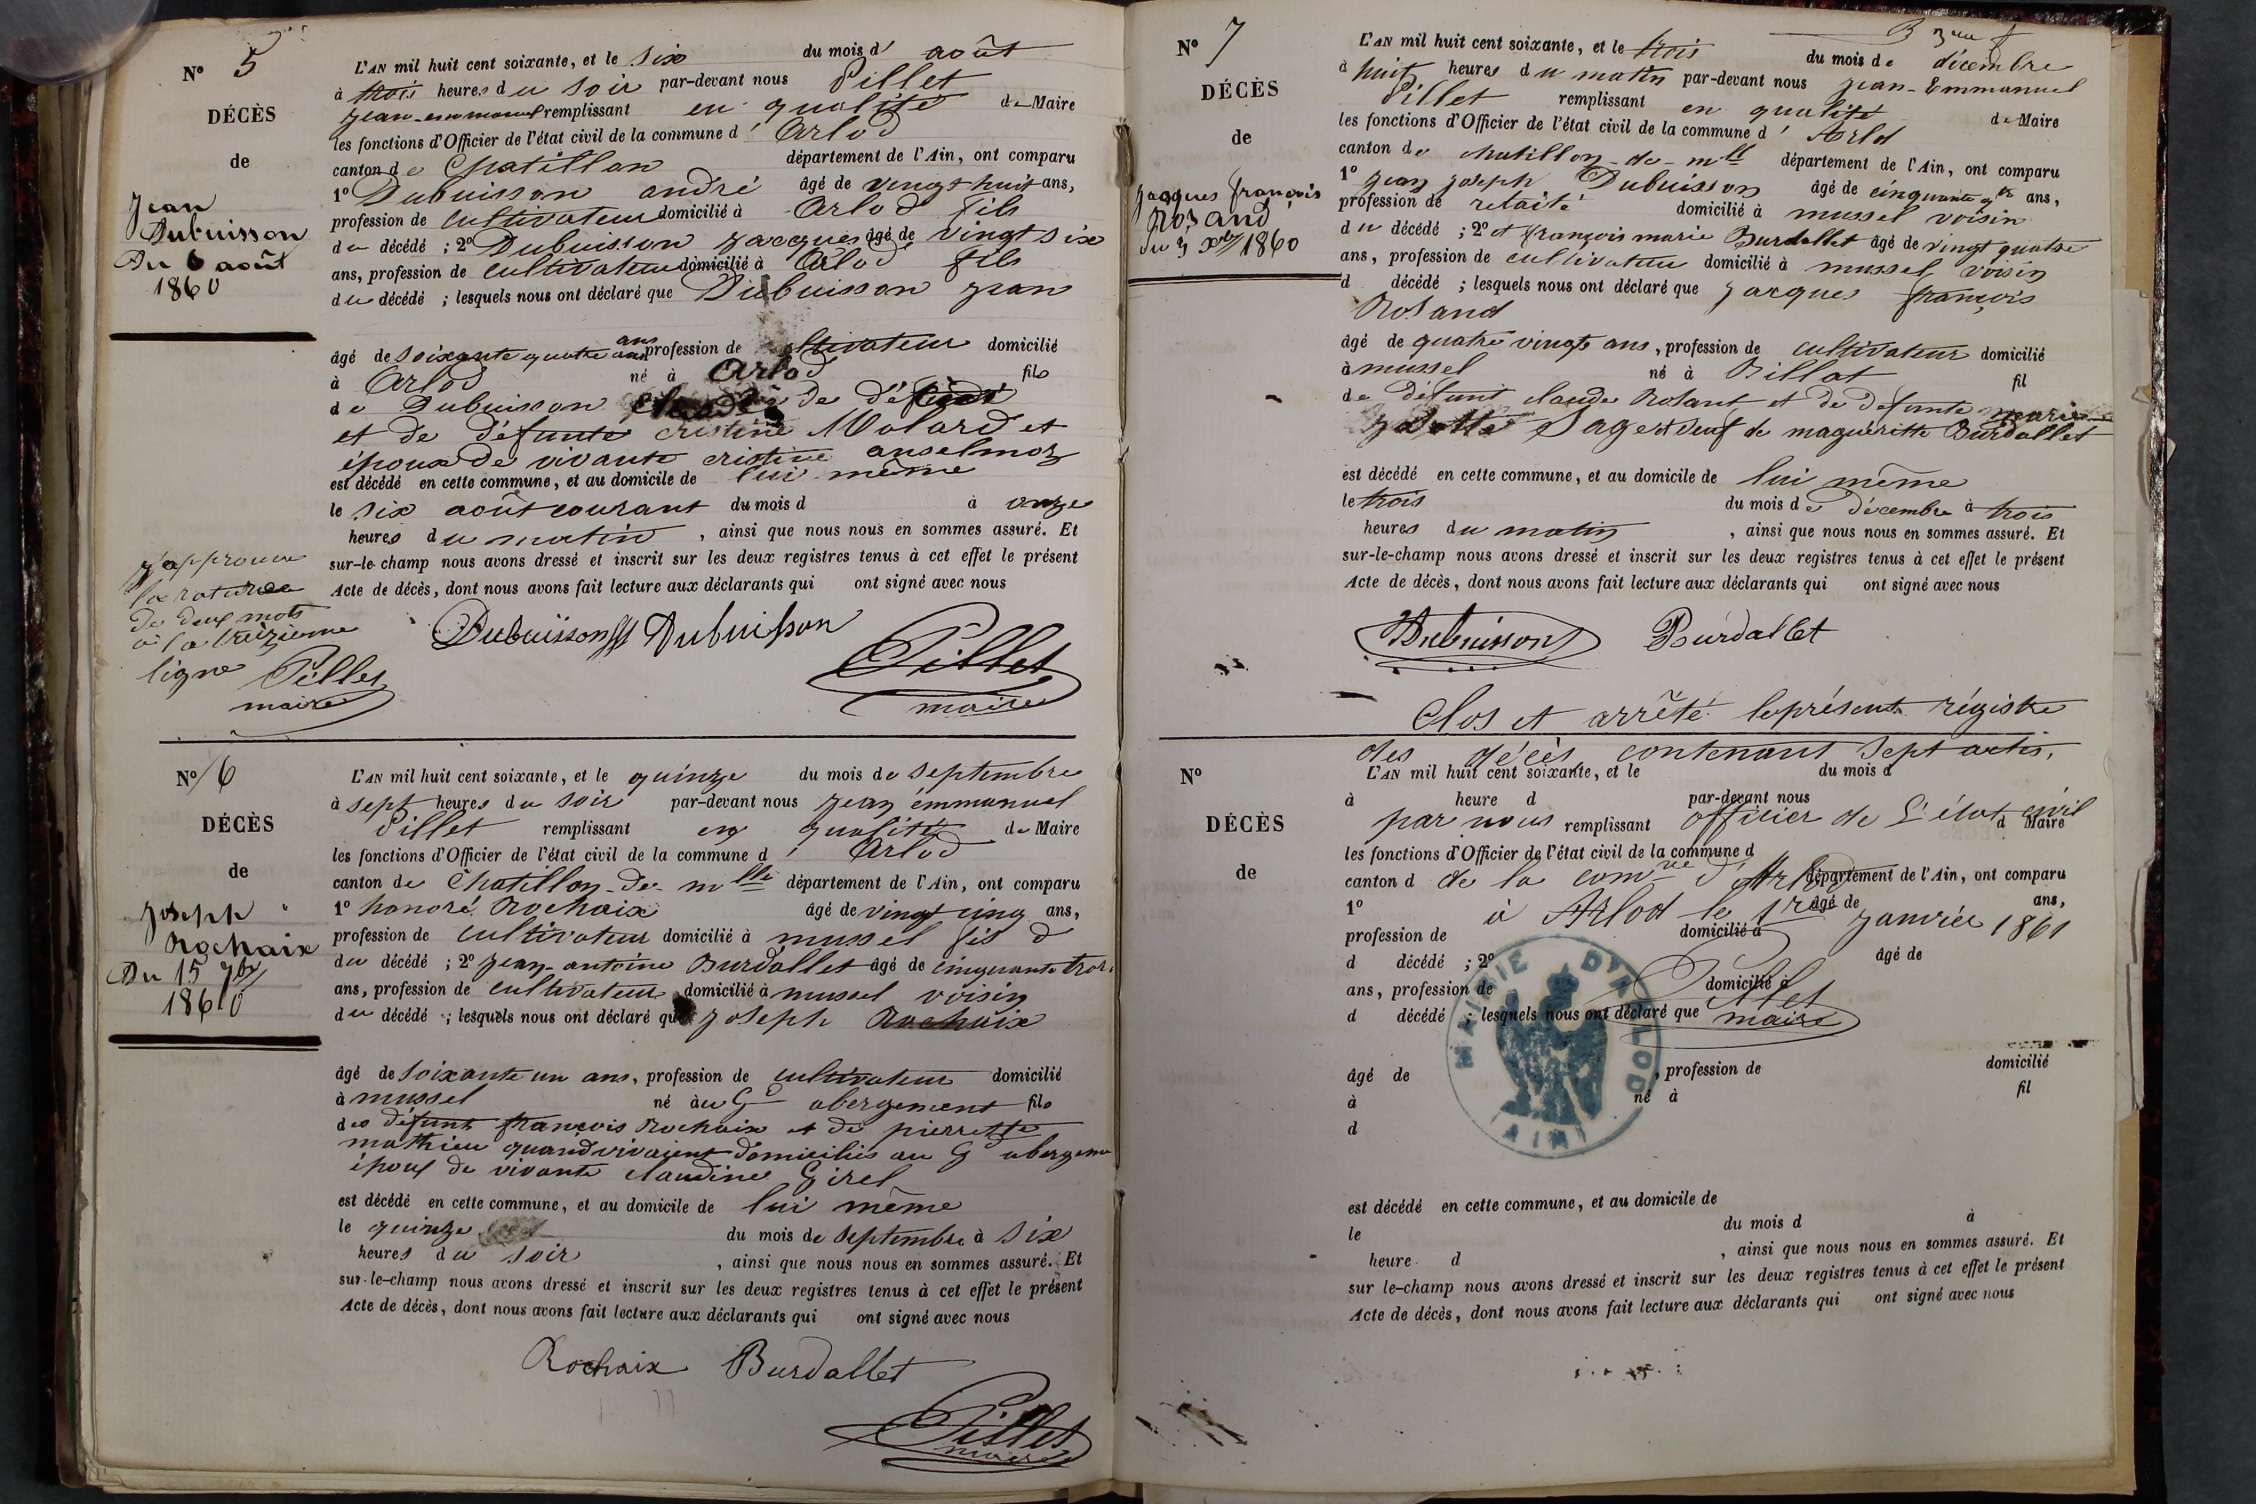 N° 5
DÉCÈS
de
Jean
Dubuisson
Du 6 août
1860
L'AN mil huit cent soixante, et le six du mois d' août
à trois heures du soir par-devant nous Pillet
jean-emmanuel remplissant en qualité de Maire
les fonctions d'Officier de l'état civil de la commune d' Arlod
canton de Chatillon département de l'Ain, ont comparu
1° Dubuisson andré âgé de vingt huit ans,
profession de cultivateur domicilié à Arlod fils
du décédé ; 2° Dubuisson jacques âgé de vingt six
ans, profession de cultivateur domicilié à Arlod fils
du décédé ; lesquels nous ont déclaré que Dubuisson jean
âgé de soixante quatre ans profession de cultivateur domicilié
à Arlod né à Arlod fils
de Dubuisson de défunt
et de défunte cristine Molard et
époux de vivante cristine anselmoz
est décédé en cette commune, et au domicile de lui même
le six août courant du mois d à onze
heures du matin , ainsi que nous nous en sommes assuré. Et
sur-le-champ nous avons dressé et inscrit sur les deux registres tenus à cet effet le présent
Acte de décès, dont nous avons fait lecture aux déclarants qui ont signé avec nous
j'approuve
la rature
de deux mots
à la treizième
ligne Pillet
maire
Dubuisson Dubuisson
Pillet
maire
N° 6
DÉCÈS
de
Joseph
Rochaix
Du 15 7bre
1860
L'AN mil huit cent soixante, et le quinze du mois de septembre
à sept heures du soir par-devant nous jean emmanuel
Pillet remplissant en qualité de Maire
les fonctions d'Officier de l'état civil de la commune d' Arlod
canton de Chatillon-de-mlle département de l'Ain, ont comparu
1° honoré Rochaix âgé de vingt cinq ans,
profession de cultivateur domicilié à mussel fis d
du décédé ; 2° jean-antoine Burdallet âgé de cinquante trois
ans, profession de cultivateur domicilié à mussel voisin
du décédé ; lesquels nous ont déclaré que joseph Rochaix
âgé de soixante un ans, profession de cultivateur domicilié
à mussel né àu Gd abergement fils
des défunts françois Rochaix et de pierrette
mathieu quand vivaient domiciliés au Gd abergeme
époux de vivante claudine Girel
est décédé en cette commune, et au domicile de lui même
le quinze du mois de septembre à six
heures du soir , ainsi que nous nous en sommes assuré. Et
sur-le-champ nous avons dressé et inscrit sur les deux registres tenus à cet effet le présent
Acte de décès, dont nous avons fait lecture aux déclarants qui ont signé avec nous
Rochaix Burdallet
Pillet
maire
N° 7
DÉCÈS
de
Jacques françois
Rozand
du 3 Xbre 1860
L'AN mil huit cent soixante, et le trois du mois de décembre
à huit heures du matin par-devant nous jean-Emmanuel
Pillet remplissant en qualité de Maire
les fonctions d'Officier de l'état civil de la commune d' Arlod
canton de chatillon-de-mlle département de l'Ain, ont comparu
1° jean joseph Dubuisson âgé de cinquante ans,
profession de retaité domicilié à mussel voisin
du décédé ; 2° et françois marie Burdallet âgé de vingt quatre
ans, profession de cultivateur domicilié à mussel voisin
d décédé ; lesquels nous ont déclaré que jacques françois
Rosand
âgé de quatre vingts ans, profession de cultivateur domicilié
à mussel né à Billat fil
de défunt claude Rosant et de defunte marie
veuf de maguéritte Burdallet
est décédé en cette commune, et au domicile de lui même
le trois du mois de décembre à trois
heures du matin , ainsi que nous nous en sommes assuré. Et
sur-le-champ nous avons dressé et inscrit sur les deux registres tenus à cet effet le présent
Acte de décès, dont nous avons fait lecture aux déclarants qui ont signé avec nous
Dubuisson Burdallet
Clos et arrêté leprésent régistre
des décès contenant sept actes,
N°
DÉCÈS
de
L'AN mil huit cent soixante, et le du mois d
à heure d par-devant nous
par nous remplissant officier de l'état civil d Maire
les fonctions d'Officier de l'état civil de la commune d
canton d de la comune d'Arlod département de l'Ain, ont comparu
1° à Arlod le 1er âgé de janvier 1861 ans,
profession de domicilié à
d décédé ; 2° âgé de
ans, profession de domicilié à
Pillet
d décédé ; lesquels nous ont déclaré que maire
MAIRIE D'ARLOD
(AIN)
âgé de , profession de domicilié
à né à fil
d
est décédé en cette commune, et au domicile de
le du mois d à
heure d , ainsi que nous nous en sommes assuré. Et
sur le-champ nous avons dressé et inscrit sur les deux registres tenus à cet effet le présent
Acte de décès, dont nous avons fait lecture aux déclarants qui ont signé avec nous